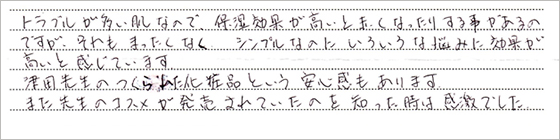 トラブルが多い肌なので、保湿効果が高いと赤くなったりする事があるの
ですが、それもまったくなく シンプルなのにいろいろな悩みに効果が
高いと感じています
津田先生のつくられた化粧品という安心感もあります
また先生のコスメが発売されていたのを知った時は感激でした